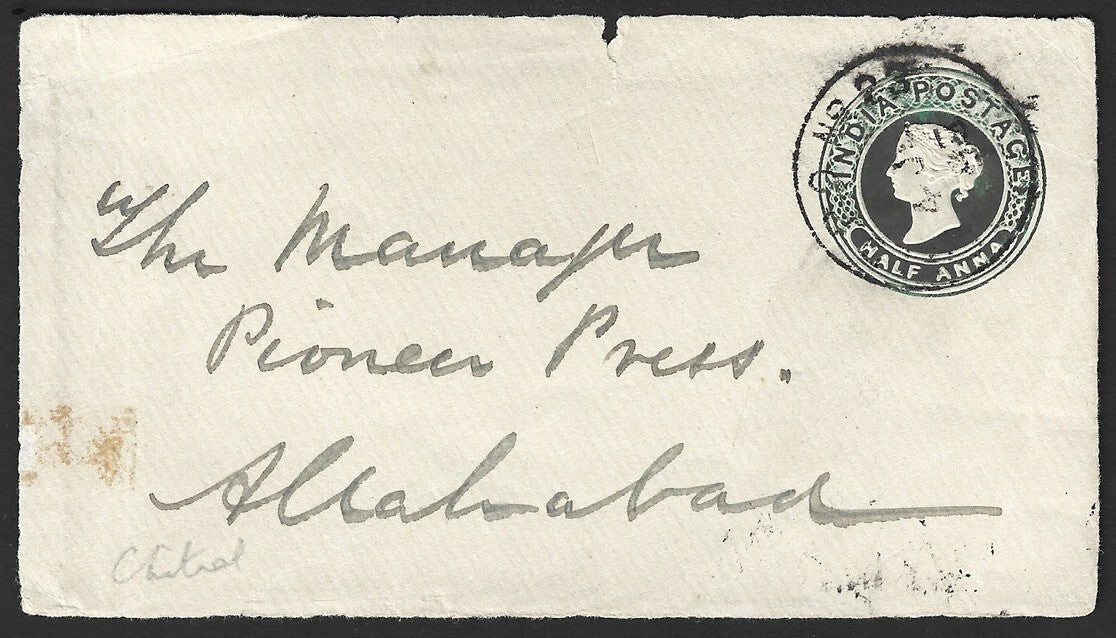 INDIA POSTAGE
HALF ANNA
The Manager
Pioneer Press.
Allahabad
Chitral